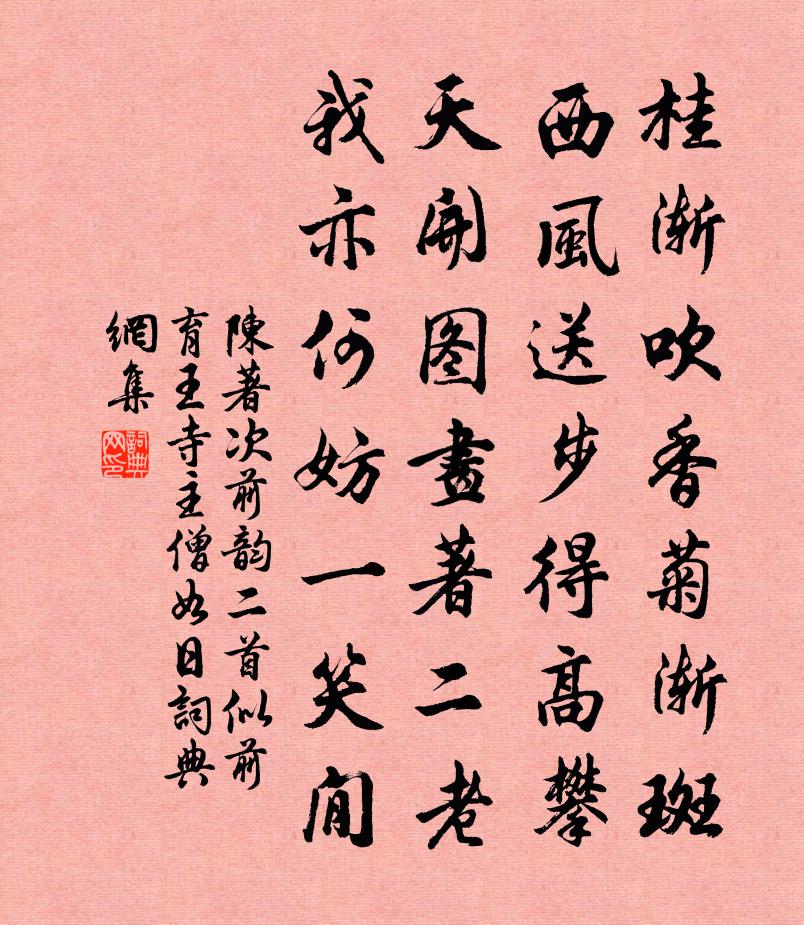 桂渐吹香菊渐斑
西風送步得高攀
天開图畫著二老
我亦何妨一笑間
陳著次前韵二首似前
育王寺主僧如日詞典
網集
詞典网印